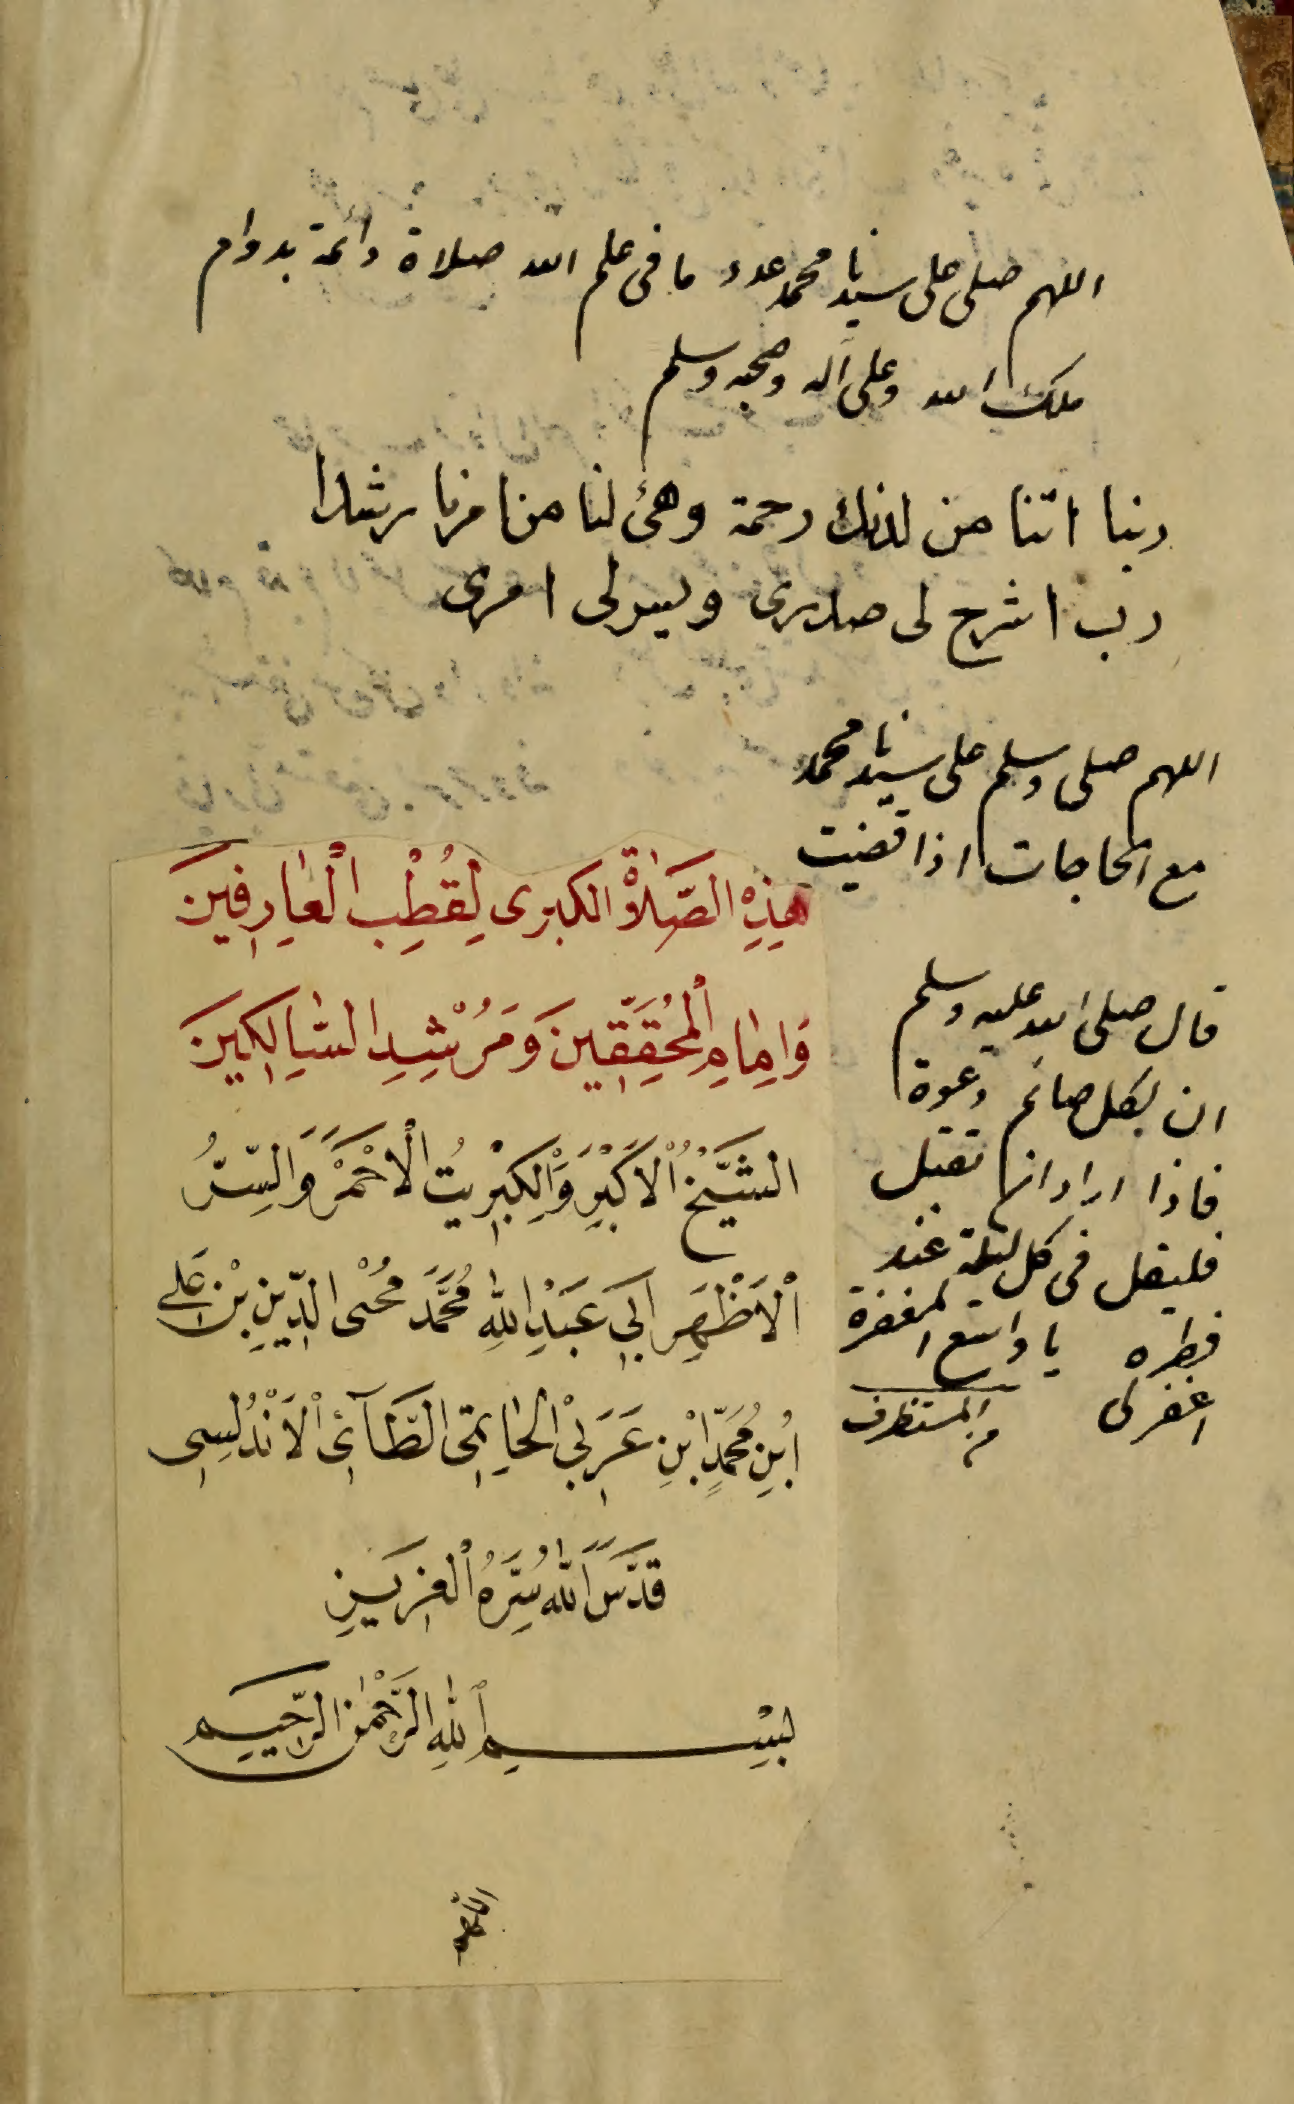 اللهم صلى على سيدنا محمد عدد ما فى علم الله صلاة دائمة بدوام
ملك الله وعلى آله وصحبه وسلم
ربنا اتنا من لدنك رحمة وهئ لنا من امرنا رشدا
رب اشرح لى صدرى ويسرلى امرى
اللهم صلى وسلم على سيدنا محمد
مع الحاجات اذا قضيت
قال صلى الله عليه وسلم
ان لكل صائم دعوة
فاذا اراد ان تقبل
فليقل فى كل ليلة عند
فطره يا واسع المغفرة
اغفرلى من المستظرف
هٰذِهِ الصَّلَاةُ الكبرى لِقُطْبِ الْعَارِفِينَ
وَاِمَامِ الْمُحَقِّقِينَ وَمُرْشِدِ السَّالِكِينَ
الشَّيْخُ الْاَكْبَرُ وَالْكِبْرِيتُ الْاَحْمَرُ وَالسِّرُّ
الْاَظْهَرِ اَبِي عَبْدِ اللهِ مُحَمَّدَ مُحْيِى الدِّينِ بْنِ عَلِى
ابْنِ مُحَمَّدٍ ابْنِ عَرَبِىْ الْحَاتِمِى الطَّآئِى الْاَنْدُلُسِى
قَدَّسَ اللهُ سِرَّهُ الْعَزِيزِ
بِسْمِ اللهِ الرَّحْمٰنِ الرَّحِيمِ
اللهم